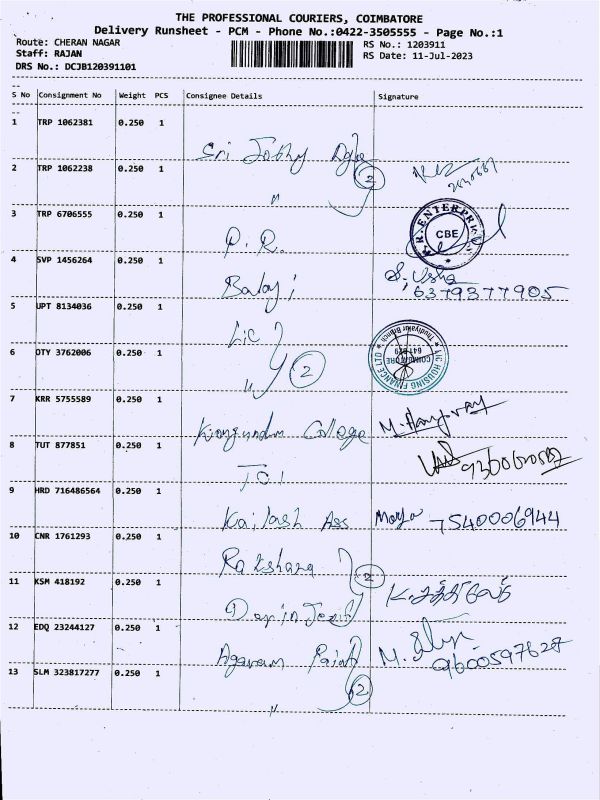 THE PROFESSIONAL COURIERS, COIMBATORE
Delivery Runsheet - PCM - Phone No.:0422-3505555 - Page No.:1
Route: CHERAN NAGAR RS No.: 1203911
Staff: RAJAN RS Date: 11-Jul-2023
DRS No.: DCJB120391101
S No Consignment No Weight PCS Consignee Details Signature
1 TRP 1062381 0.250 1 Sri Jothy
2 TRP 1062238 0.250 1 " 2
3 TRP 6706555 0.250 1 P.R. ENTERPRISES CBE
4 SVP 1456264 0.250 1 Balaji S. Usha
6379377905
5 UPT 8134036 0.250 1 Lic
6 OTY 3762006 0.250 1 " 2 LIC HOUSING FINANCE LTD COIMBATORE
7 KRR 5755589 0.250 1 Kongundum College
8 TUT 877851 0.250 1 TOI
9 HRD 716486564 0.250 1 Kailash Ass 7540006944
10 CNR 1761293 0.250 1 Rakshana 2
11 KSM 418192 0.250 1
12 EDQ 23244127 0.250 1 Agaram Paint M.
9600597627
13 SLM 323817277 0.250 1 " 2